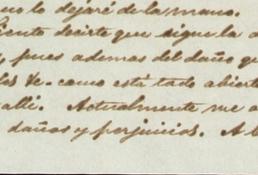 no lo dejaré de la mano.
siento decirte que sigue la
, pues ademas del daño qu
los Ve- como está todo abiert
alli. Actualmente me a
daños y perjuicios. A l